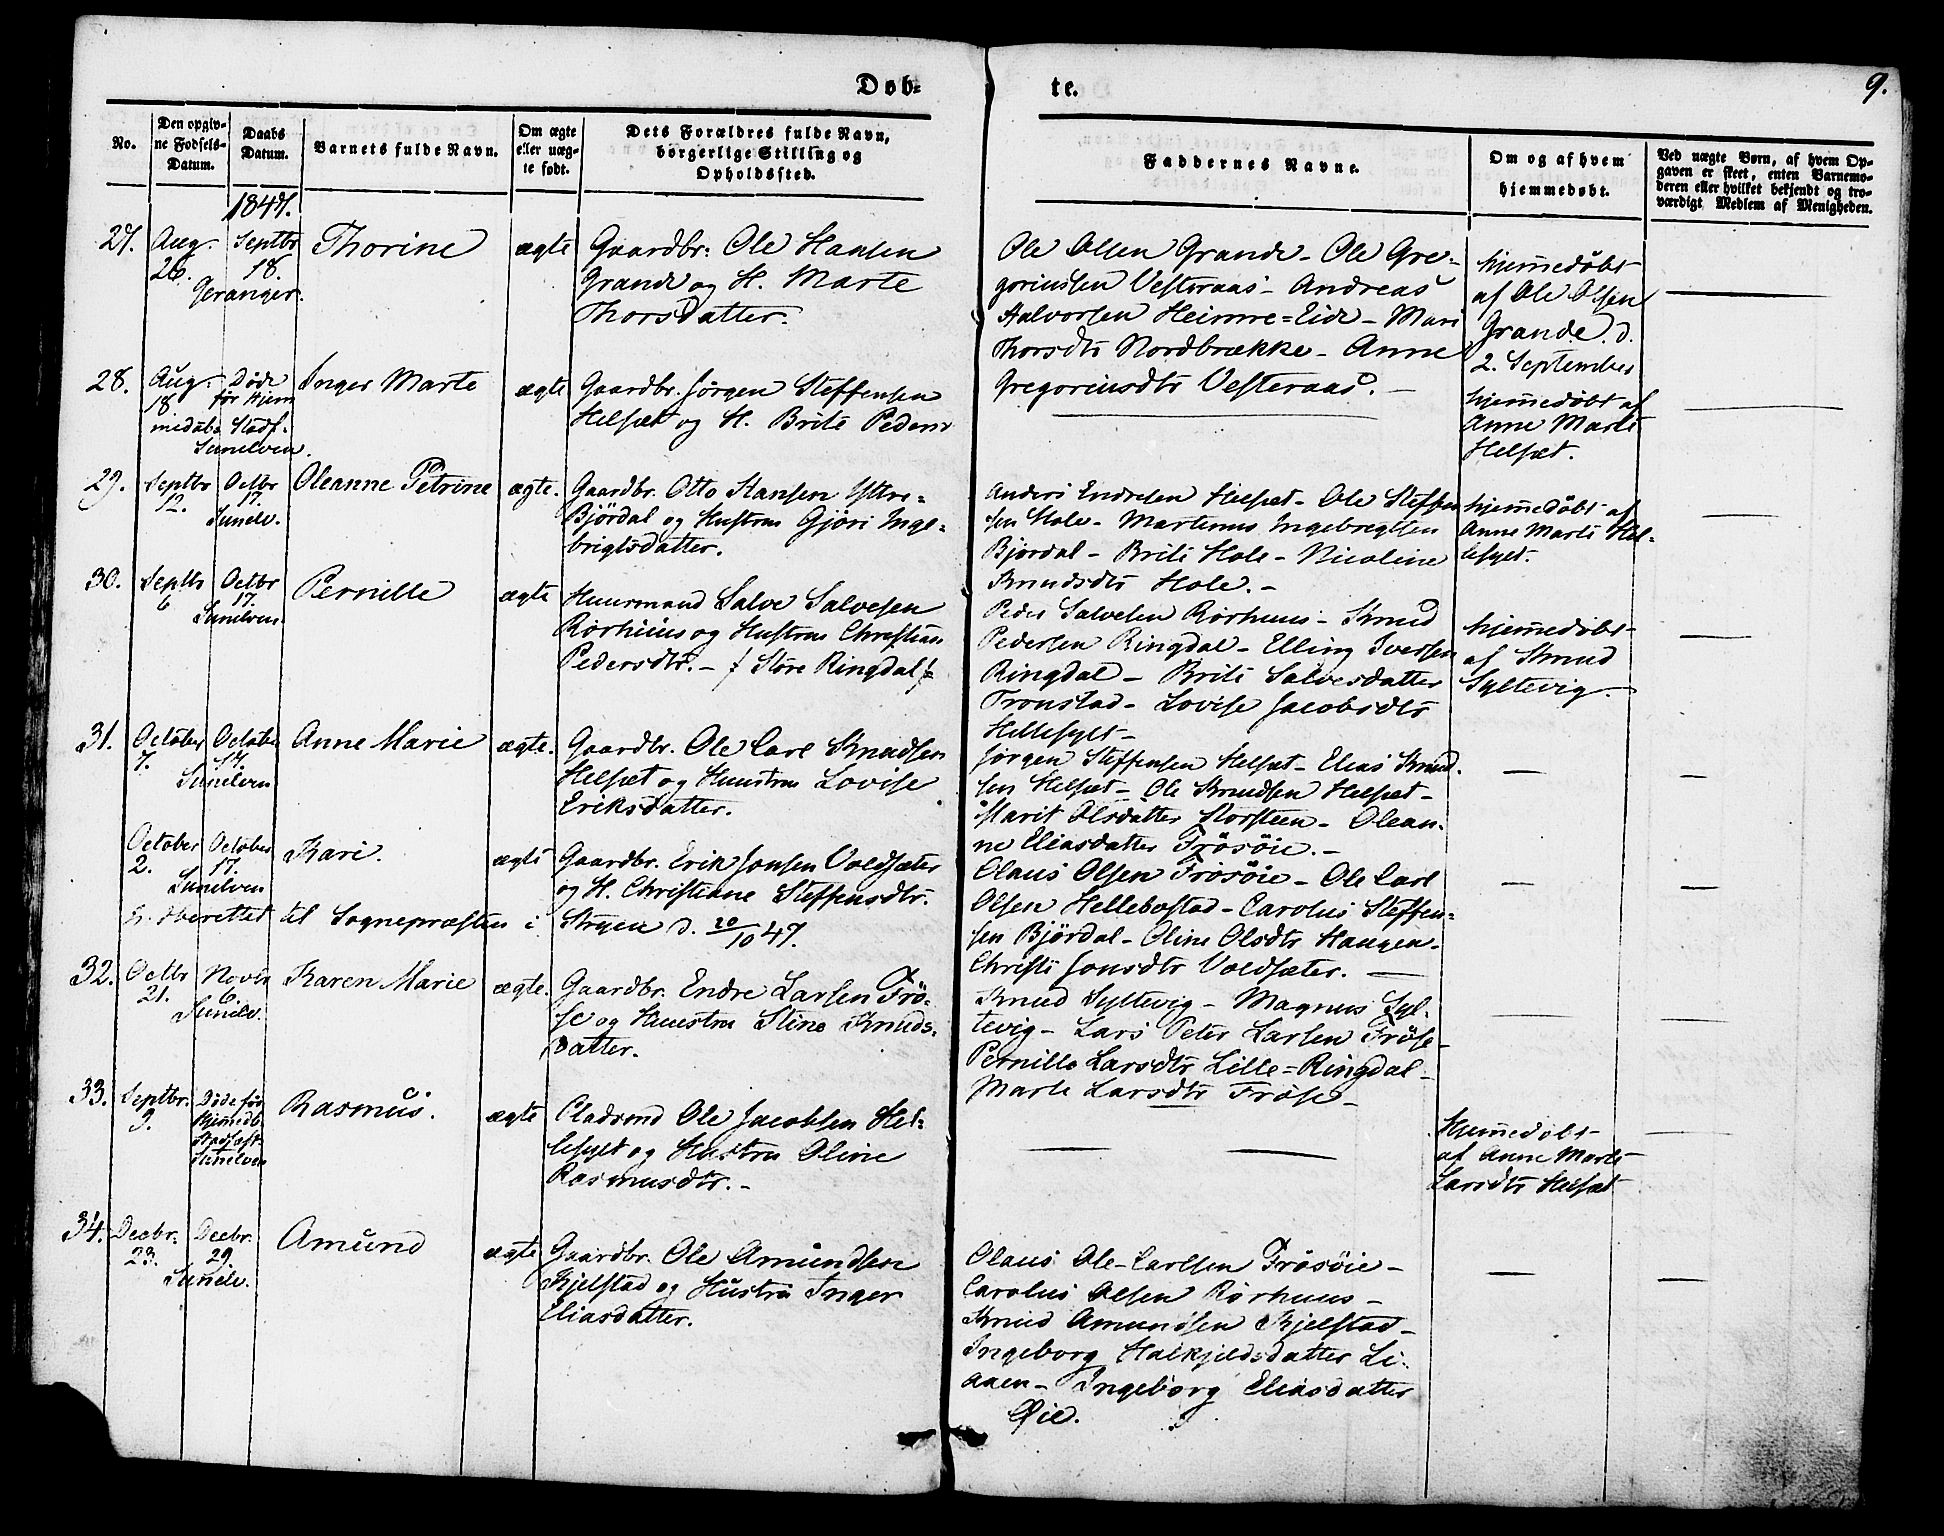 Døb=
te.
9.
No.
Den opgiv=
ne Fødsels=
Datum.
Daabs
Datum.
Barnets fulde Navn.
Om ægte
eller uæg=
te født.
Dets Forældres fulde Navn,
borgerlige Stilling og
Opholdssted.
Faddernes Navne.
Om og af hvem
hjemmedøbt.
Ved uægte Børn, af hvem Op=
gaven er skeet, enten Barnemo=
deren eller hvilket bekjendt og tro=
værdigt Medlem af Menigheden.
1847.
27.
Aug.
26.
Septbr
18.
Geranger.
Thorine
ægte
Gaardbr: Ole Hansen
Grande og H. Marte
Thorsdatter.
Ole Olsen Grande - Ole Gre=
goriussen Vesteraas - Andreas
Halvorsen Heimre=Eide - Mari
Thorsdtr Nordbrække - Anne
Gregoriusdtr Vesteraas. -
hjemedøbt
af Ole Olsen
Grande. d.
2. September
28.
Aug.
18
Døde
før Hjem
medåbs Stadf.
Sunelven.
Inger Marte
ægte
Gaardbr. Jørgen Steffensen
Helsæt og H. Brite Peders
hjemedøbt af
Anne Marte
Helsæt.
29.
Septbr
12.
Octbr
17.
Sunelv.
Oleanne Petrine
ægte.
Gaardbr. Otto Hansen Yttre=
Bjørdal og Hustru Gjøri Inge=
brigtsdatter.
Anders Endresen Helsæt - Ole Steffen
sen Hole - Martinus Ingebregtsen
Bjørdal - Brite Hole - Nicoline
Knudsdtr Hole. -
hjemedøbt af
Anne Marte Hel=
lesylt.
30.
Septbr
6
Octbr
17.
Sunelven
Pernille
ægte
Huusmand Salve Salvesen
Rørhuus og Hustru Christian
Pedersdtr. - /: Støre Ringdal :/
Peder Salvesen Rørhuus - Knud
Pedersen Ringdal - Elling Iversen
Ringdal - Brite Salvesdatter
Tronstad - Lovise Jacobsdtr
Hellesylt -
hjemedøbt
af Knud
Syltevig -
31.
October
7.
October
17.
Sunelven
Anne Marie
ægte.
Gaardbr. Ole Carl Knudsen
Helsæt og Huustru Lovise
Eriksdatter.
Jørgen Steffensen Helsæt - Elias Knud.
sen Helsæt - Ole Knudsen Helsæt -
Marit Olsdatter Korsteen - Olean=
ne Eliasdatter Frøsøie. -
October
2.
October
17.
Sunelven
Kari.
ægte
Gaardbr. Erik Jonsen Voldsæter
og H. Christiane Steffensdtr.
Indberettet til Sognepræsten i Stryen d. 20/10 47.
Olaus Olsen Frøsøie - Ole Carl
Olsen Hellebostad - Carolus Steffen=
sen Bjørdal - Oline Olsdtr Haugen -
Christi Jonsdtr Voldsæter. -
32.
Octbr
21.
Novbr
6.
Sunelv.
Karen Marie
ægte.
Gaardbr. Endre Larsen Frø=
se og Huustru Stine Knuds=
datter.
Knud Syltevig - Magnus Syl=
tevig - Lars Peter Larsen Frøse -
Pernille Larsdtr Lille=Ringdal -
Marte Larsdtr Frøse -
33.
Septbr.
9.
Døde før
Hjemedb.
Stadfæst.
Sunelven
Rasmus.
ægte
Pladsmd Ole Jacobsen Hel=
lesylt og Hustru Oline
Rasmusdtr. -
hjemedøbt
af Anne Marte
Larsdtr Helsæt
34.
Decbr.
23.
Decbr.
29.
Sunelv.
Amund
ægte
Gaardbr. Ole Amundsen
Kjelstad og Hustru Inger
Eliasdatter.
Olaus Ole-Carlsen Frøsøie -
Carolus Olsen Rørhuus -
Knud Amundsen Kjelstad -
Ingeborg Halkjeldsdatter Li=
aaen - Ingeborg Eliasdatter
Øie.